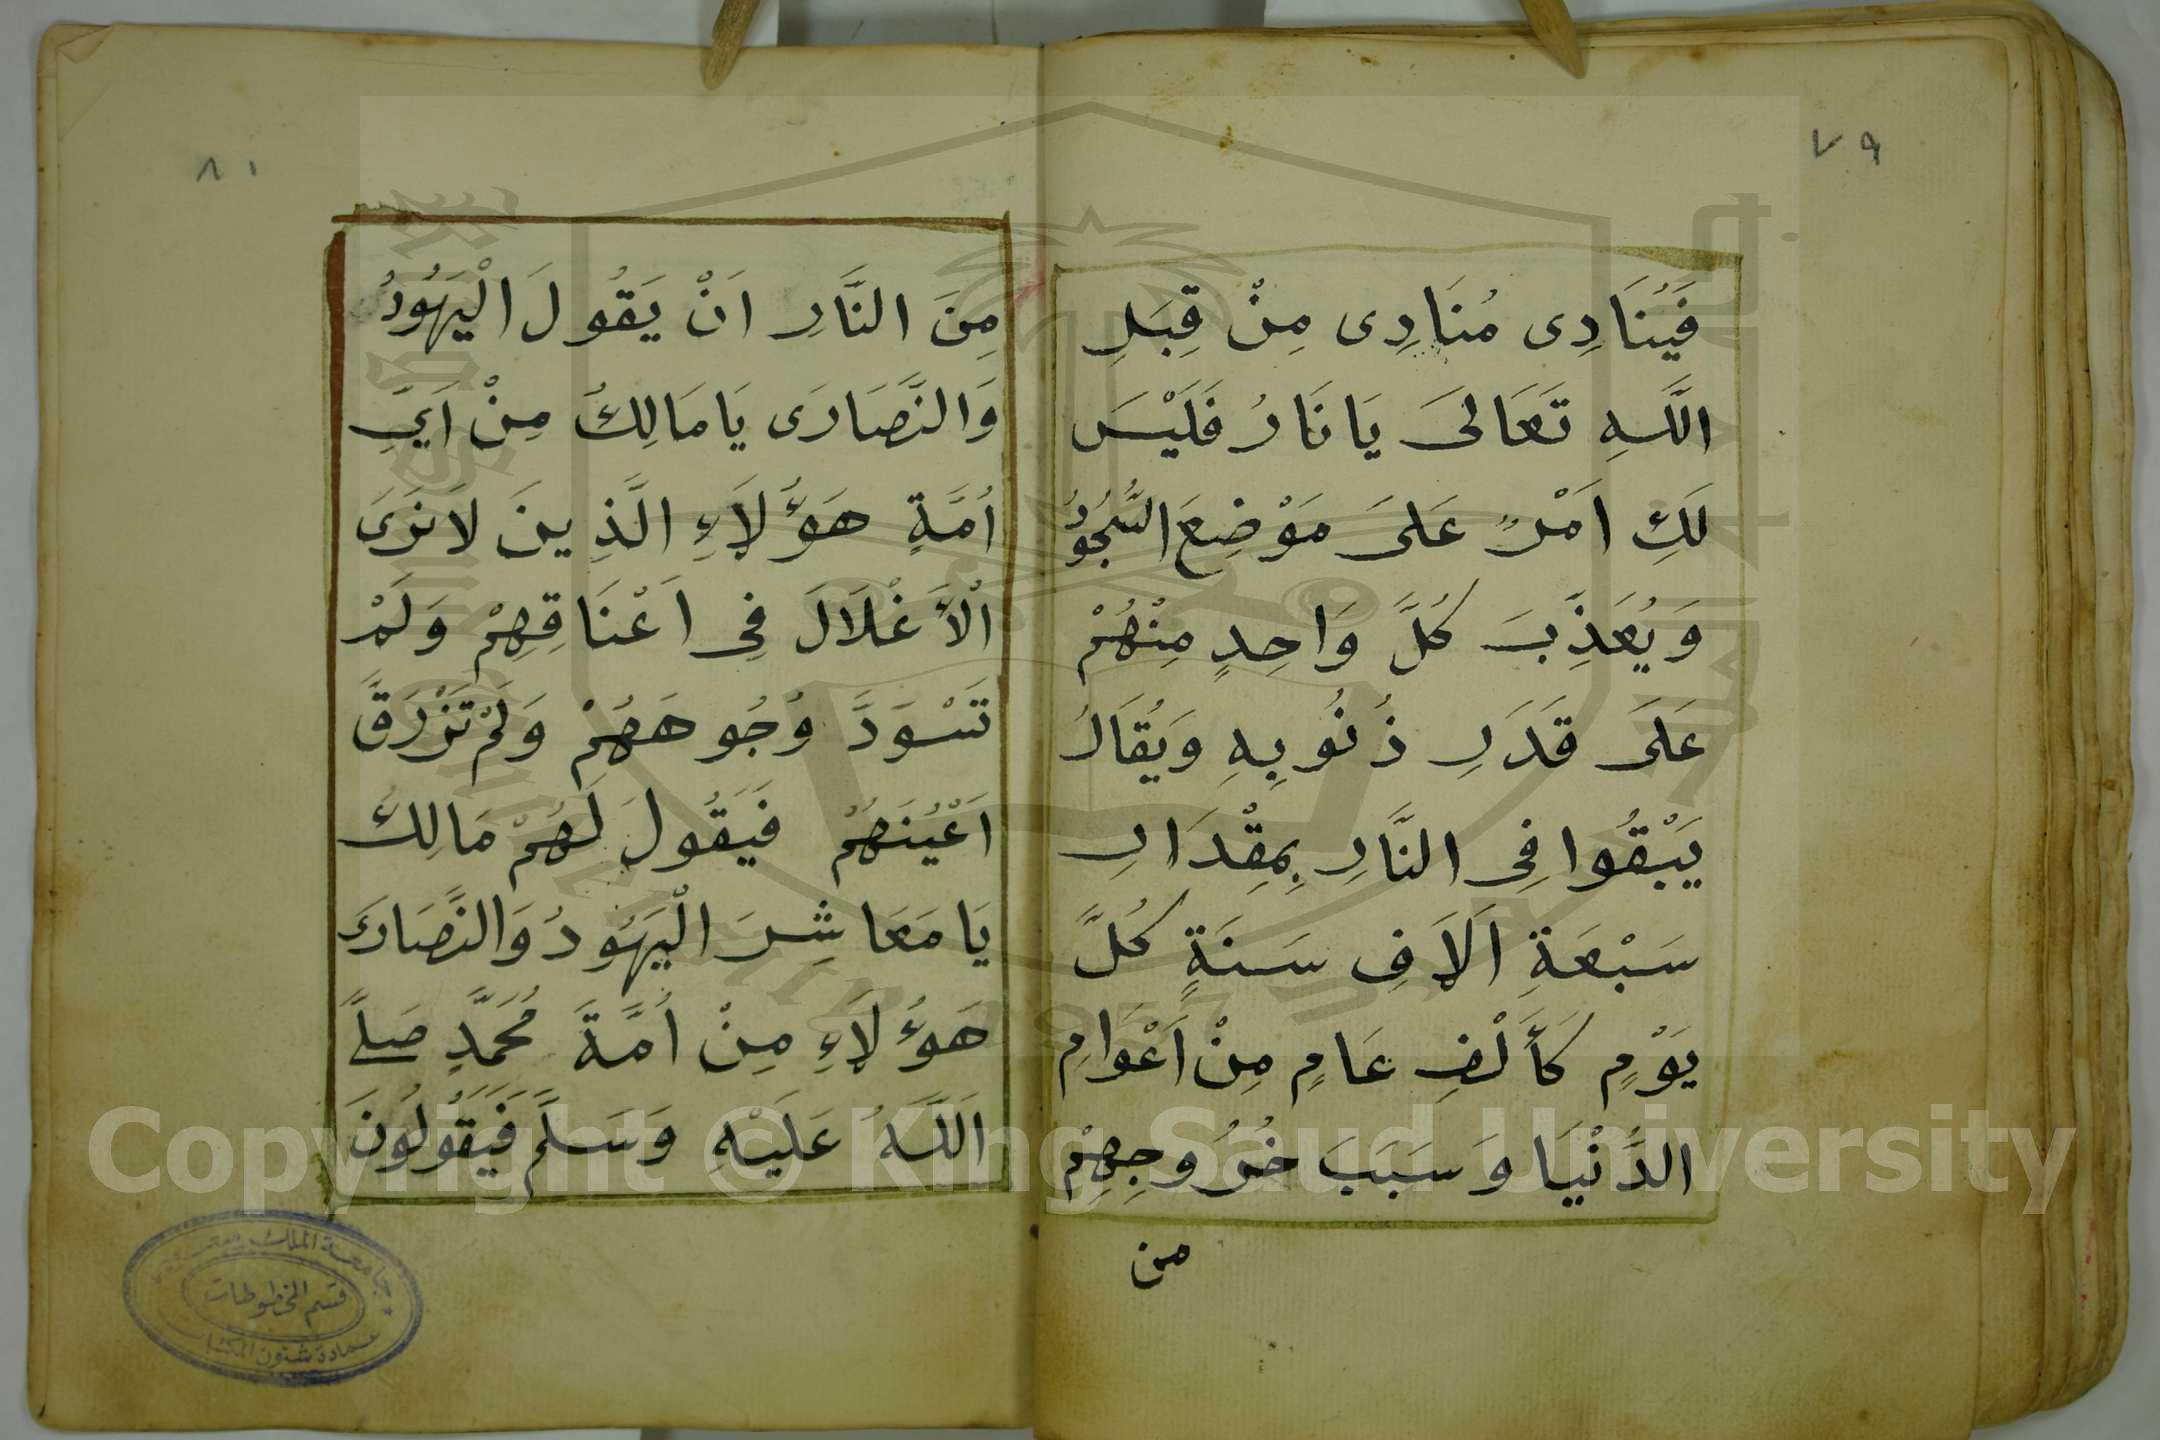 ٧٩
فَيُنَادِى مُنَادِى مِنْ قِبَلِ
اللَّهِ تَعَالىَ يَا نَارُ فَلَيْسَ
لَكِ اَمْرٌ عَلىَ مَوْضِعَ السُّجُودُ
وَيُعَذِّبَ كُلَّ وَاحِدٍ مِنْهُمْ
عَلىَ قَدَرِ ذُنُوبِهِ وَيُقَالُ
يَبْقُوا فِى النَّارِ بِمِقْدَارِ
سَبْعَةِ اَلاَفِ سَنَةٍ كُلَّ
يَوْمٍ كَأَلْفِ عَامٍ مِنْ اَعْوَامِ
الدُّنْيَا وَسَبَبَ خُرُوجِهِمْ
من
٨١
مِنَ النَّارِ اَنْ يَقُولَ الْيَهُودُ
وَالنَّصَارَى يَا مَالِكُ مِنْ اَيِّ
اُمَّةٍ هَؤُلاَءِ الَّذِينَ لاَ نَرَى
الْأَغْلَالَ فِى اَعْنَاقِهِمْ وَلَمْ
تَسْوَدَّ وُجُوهَهُمْ وَلَمْ تَزْرَقَّ
اَعْيُنَهُمْ فَيَقُولَ لَهُمْ مَالِكُ
يَا مَعَاشِرَ الْيَهُودُ وَالنَّصَارَى
هَؤُلاَءِ مِنْ اُمَّةَ مُحَمَّدٍ صَلَّى
اَللَّهُ عَلَيْهِ وَسَلَّمَ فَيَقُولُونَ
جامعة الملك سعود
قسم المخطوطات
عمادة شئون المكتبات
Copyright © King Saud University